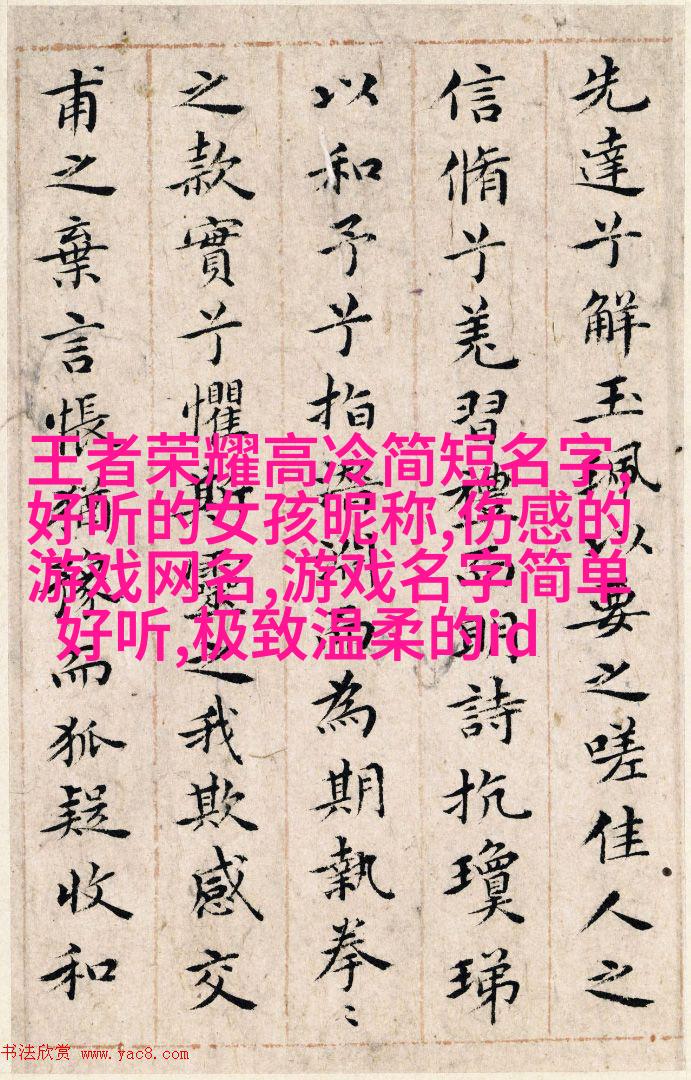 先達兮解玉珮以要之嗟佳人之
信脩兮羌習禮而明詩抗瓊珶
以和予兮指潛淵而為期執拳〻
之款實兮懼斯靈之我欺感交
甫之棄言悵猶豫而狐疑收和
王者荣耀高冷简短名字,
好听的女孩昵称,伤感的
游戏网名,游戏名字简单
好听,极致温柔的id
书法欣赏 www.yac8.com